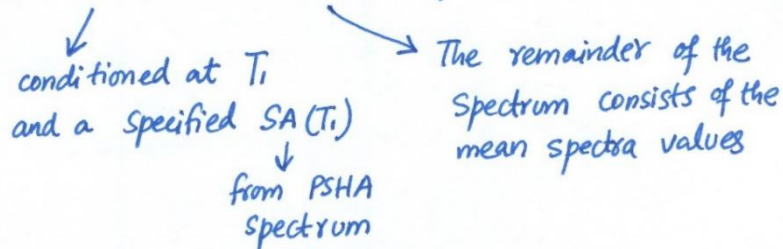 conditioned at T₁
and a specified SA(T₁)
from PSHA
spectrum
The remainder of the
spectrum consists of the
mean spectra values